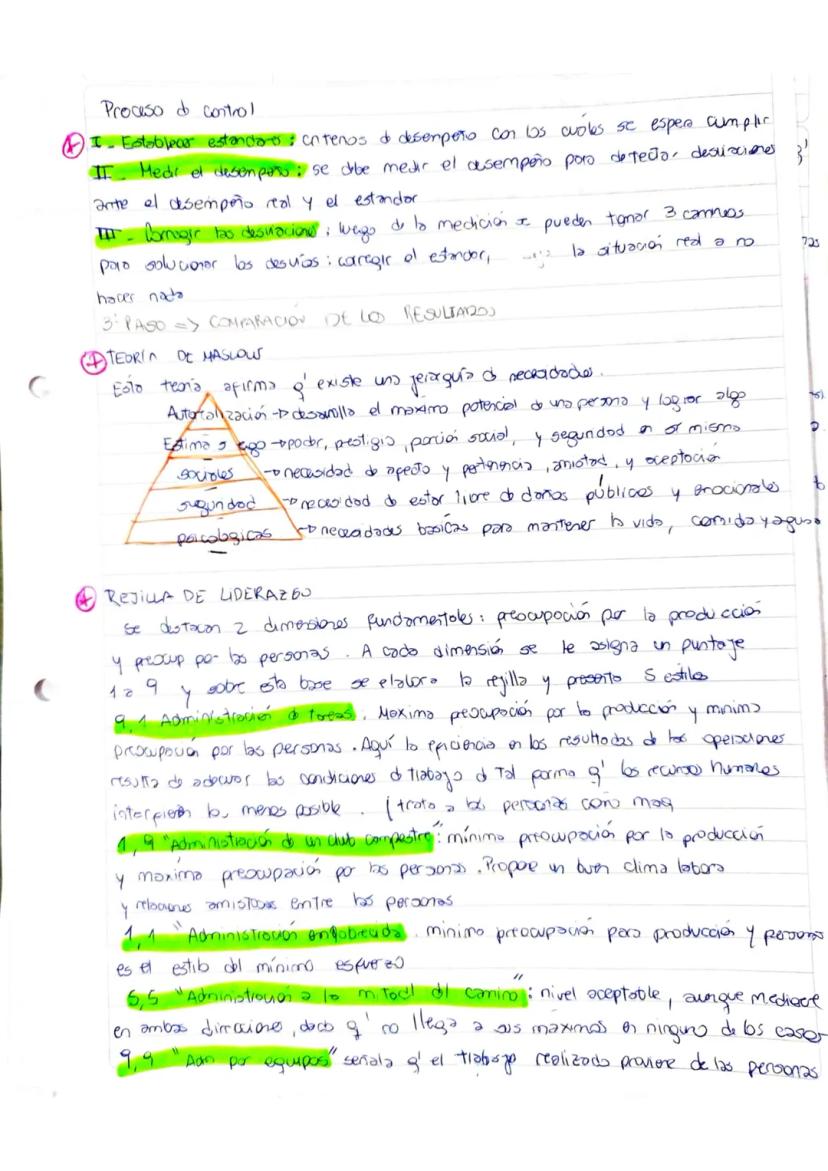 Proceso d control
I - Establecer estandares : criterios d desempeño con los cuáles se espera cumplir
II - Medir el desempeño : se debe medir el desempeño para detectar desviaciones
ante el desempeño real y el estandar
III - Corregir las desviaciones ; luego de la medición se pueden tomar 3 caminos
para solucionar los desvíos : corregir el estandar, la situación real o no
hacer nada
3° PASO => COMPARACIÓN DE LOS RESULTADOS
TEORÍA DE MASLOW
Esta teoria afirma q' existe una jerarquía d necesidades.
Autorealización → desarrolla el maximo potencial de una persona y lograr algo
Estima o ego → poder, prestigio, posción social, y seguridad en si mismo
sociales → necesidad de afecto y pertenencia, amistad, y aceptación
seguridad → necesidad de estar libre de daños públicos y emocionales
psicologicas → necesidades basicas para mantener la vida, comida y agua
REJILLA DE LIDERAZGO
se destacan 2 dimensiones fundamentales : preocupación por la producción
y preocup por las personas. A cada dimensión se le asigna un puntaje
1 a 9 y sobre esta base se elabora la rejilla y presenta 5 estilos
9,1 Administración d tareas. Maxima preocupación por la producción y minima
preocupación por las personas. Aquí la eficiencia en los resultados de las operaciones
resulta de adecuar las condiciones d trabajo d tal forma q' los recursos humanos
interfieran lo menos posible. (trata a las personas como maq
1,9 "Administración de un club campestre" : mínima preocupación por la producción
y maxima preocupación por las personas. Propone un buen clima labora
y relaciones amistosas entre las personas
1,1 "Administración empobrecida. minima preocupación para producción y personas
es el estilo del mínimo esfuerzo
5,5 "Administración a la mitad del camino" : nivel aceptable, aunque mediocre
en ambas direcciones, dado q' no llega a sus maximos en ninguno de los casos
9,9 "Adm por equipos" señala q' el trabajo realizado proviene de las personas